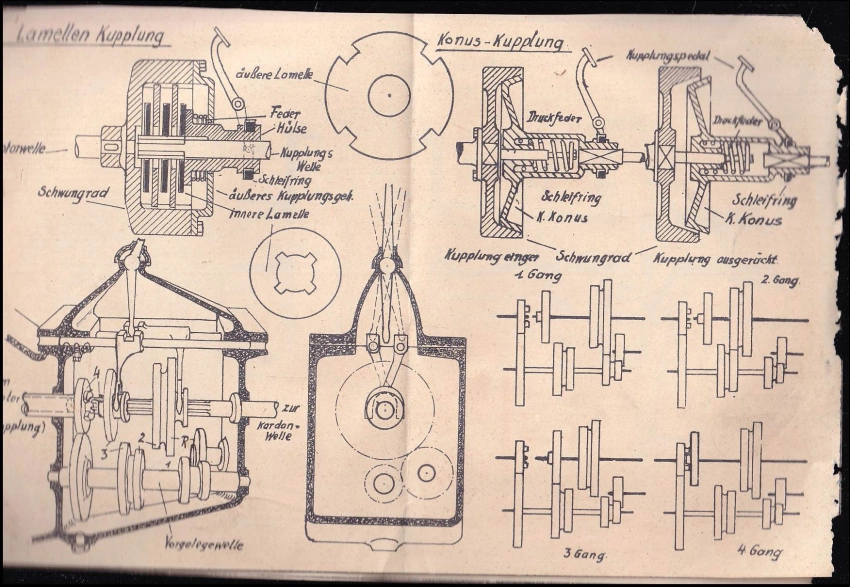 Lamellen Kupplung
äußere Lamelle
Feder
Hülse
Kupplungs
Welle
Schleifring
äußeres Kupplungsgeh.
innere Lamelle
otorwelle
Schwungrad
Konus-Kupplung
Kupplungspedal
Druckfeder
Druckfeder
Schleifring
K. Konus
Schleifring
K. Konus
Kupplung einger
Schwungrad
Kupplung ausgerückt
1 Gang
2. Gang.
3 Gang.
4 Gang
4
3
2
R
1
pplung)
zur
Kardan-
Welle
Vorgelegewelle